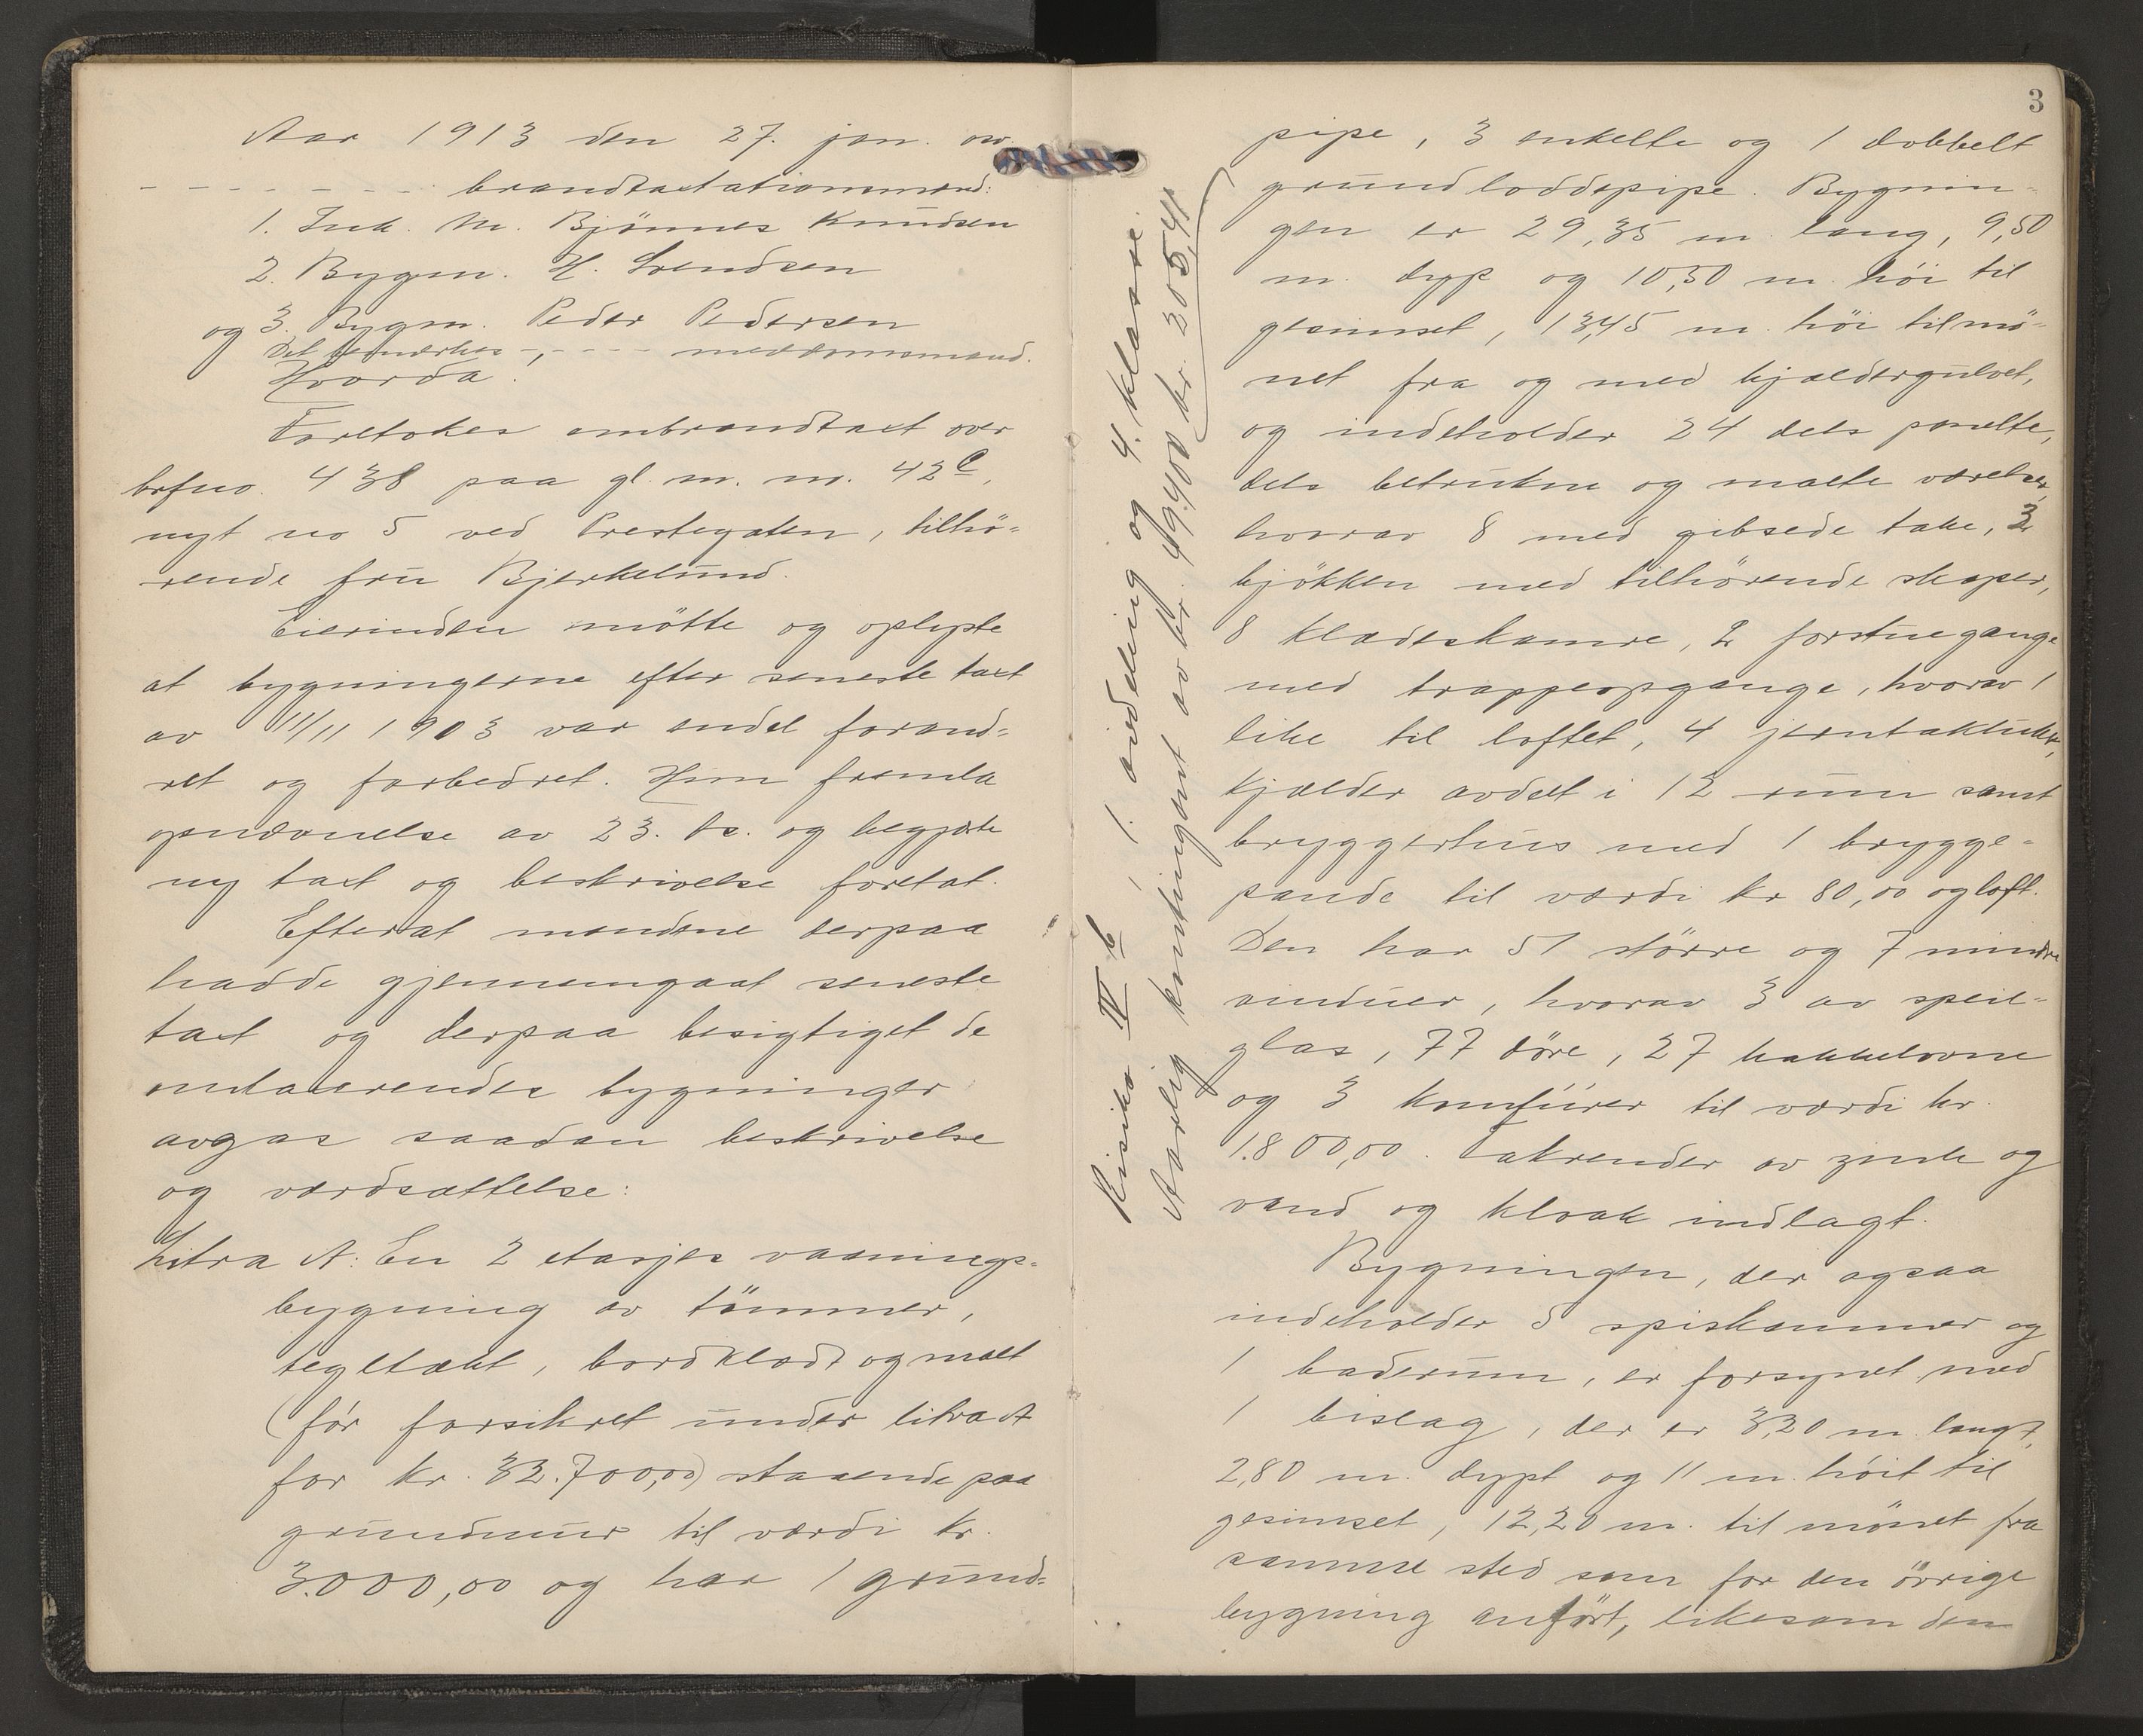 Aar 1913 den 27. jan. ov.
- - - - - - - brandtaxtationsmænd:
1. Ink. M. Bjönnes Knudsen
2. Bygm. H. Svendsen
og 3. Bygm. Peder Pedersen
Det bemærkes - , - - - meddomsmænd.
Hvorda!
Foretokes ombrandtaxt over
brfno. 438 paa gl. m. no. 42c,
nyt no 5 ved Prestegaten, tilhö-
rende fru Bjerkelund.
Eierinden mötte og oplyste
at bygningerne efter seneste taxt
av 11/11 1903 var endel forand-
ret og forbedret. Hun fremla
opnævnelse av 23. ds. og begjærte
ny taxt og beskrivelse foretat.
Efterat mændene derpaa
hadde gjennemgaat seneste
taxt og derpaa besigtiget de
omtaxerendes bygninger
avgas saadan beskrivelse
og værdsættelse:
Litra A: En 2 etasjes vaanings-
bygning av tömmer,
tegltækt, bordklædt og malt
(för forsikret under litra A
for kr. 32.700,00) staaende paa
grundmur til værdi kr.
3.000,00 og har 1 grund-
Risiko IV b, 1. avdeling og 4. klasse.
Aarlig kontingent av kr. 49.400 kr. 205,41
3
pipe, 3 enkelte og 1 dobbelt
grundloddspipe. Bygnin-
gen er 29,35 m. lang, 9,50
m. dyp og 10,50 m. höi til
gesimset, 13,45 m. höi til mö-
net fra og med kjeldergulvet,
og indeholder 24 dels panelte,
dels betrukne og malte værelser,
hvorav 8 med gibsede take, 3
kjökken med tilhörende skaper,
8 klædeskamre, 2 forstuegange
med trappeopgange, hvorav 1
like til loftet, 4 jerntakluker,
kjælder avdelt i 12 rum samt
bryggerhus med 1 brygge-
pande til værdi kr 80,00 og loft.
Den har 51 större og 7 mindre
vinduer, hvorav 3 av speil-
glas, 77 döre, 27 kakkelovne
og 3 komfürer til værdi kr.
1.800,00. Takrender av zink og
vand og kloak indlagt.
Bygningen, der ogsaa
indeholder 5 spiskammer og
1 baderum, er forsynet med
1 bislag, der er 3,20 m. langt,
2,80 m. dypt og 11 m. höit til
gesimset, 12,20 m. til mönet fra
samme sted som for den övrige
bygning anfört, likesom den